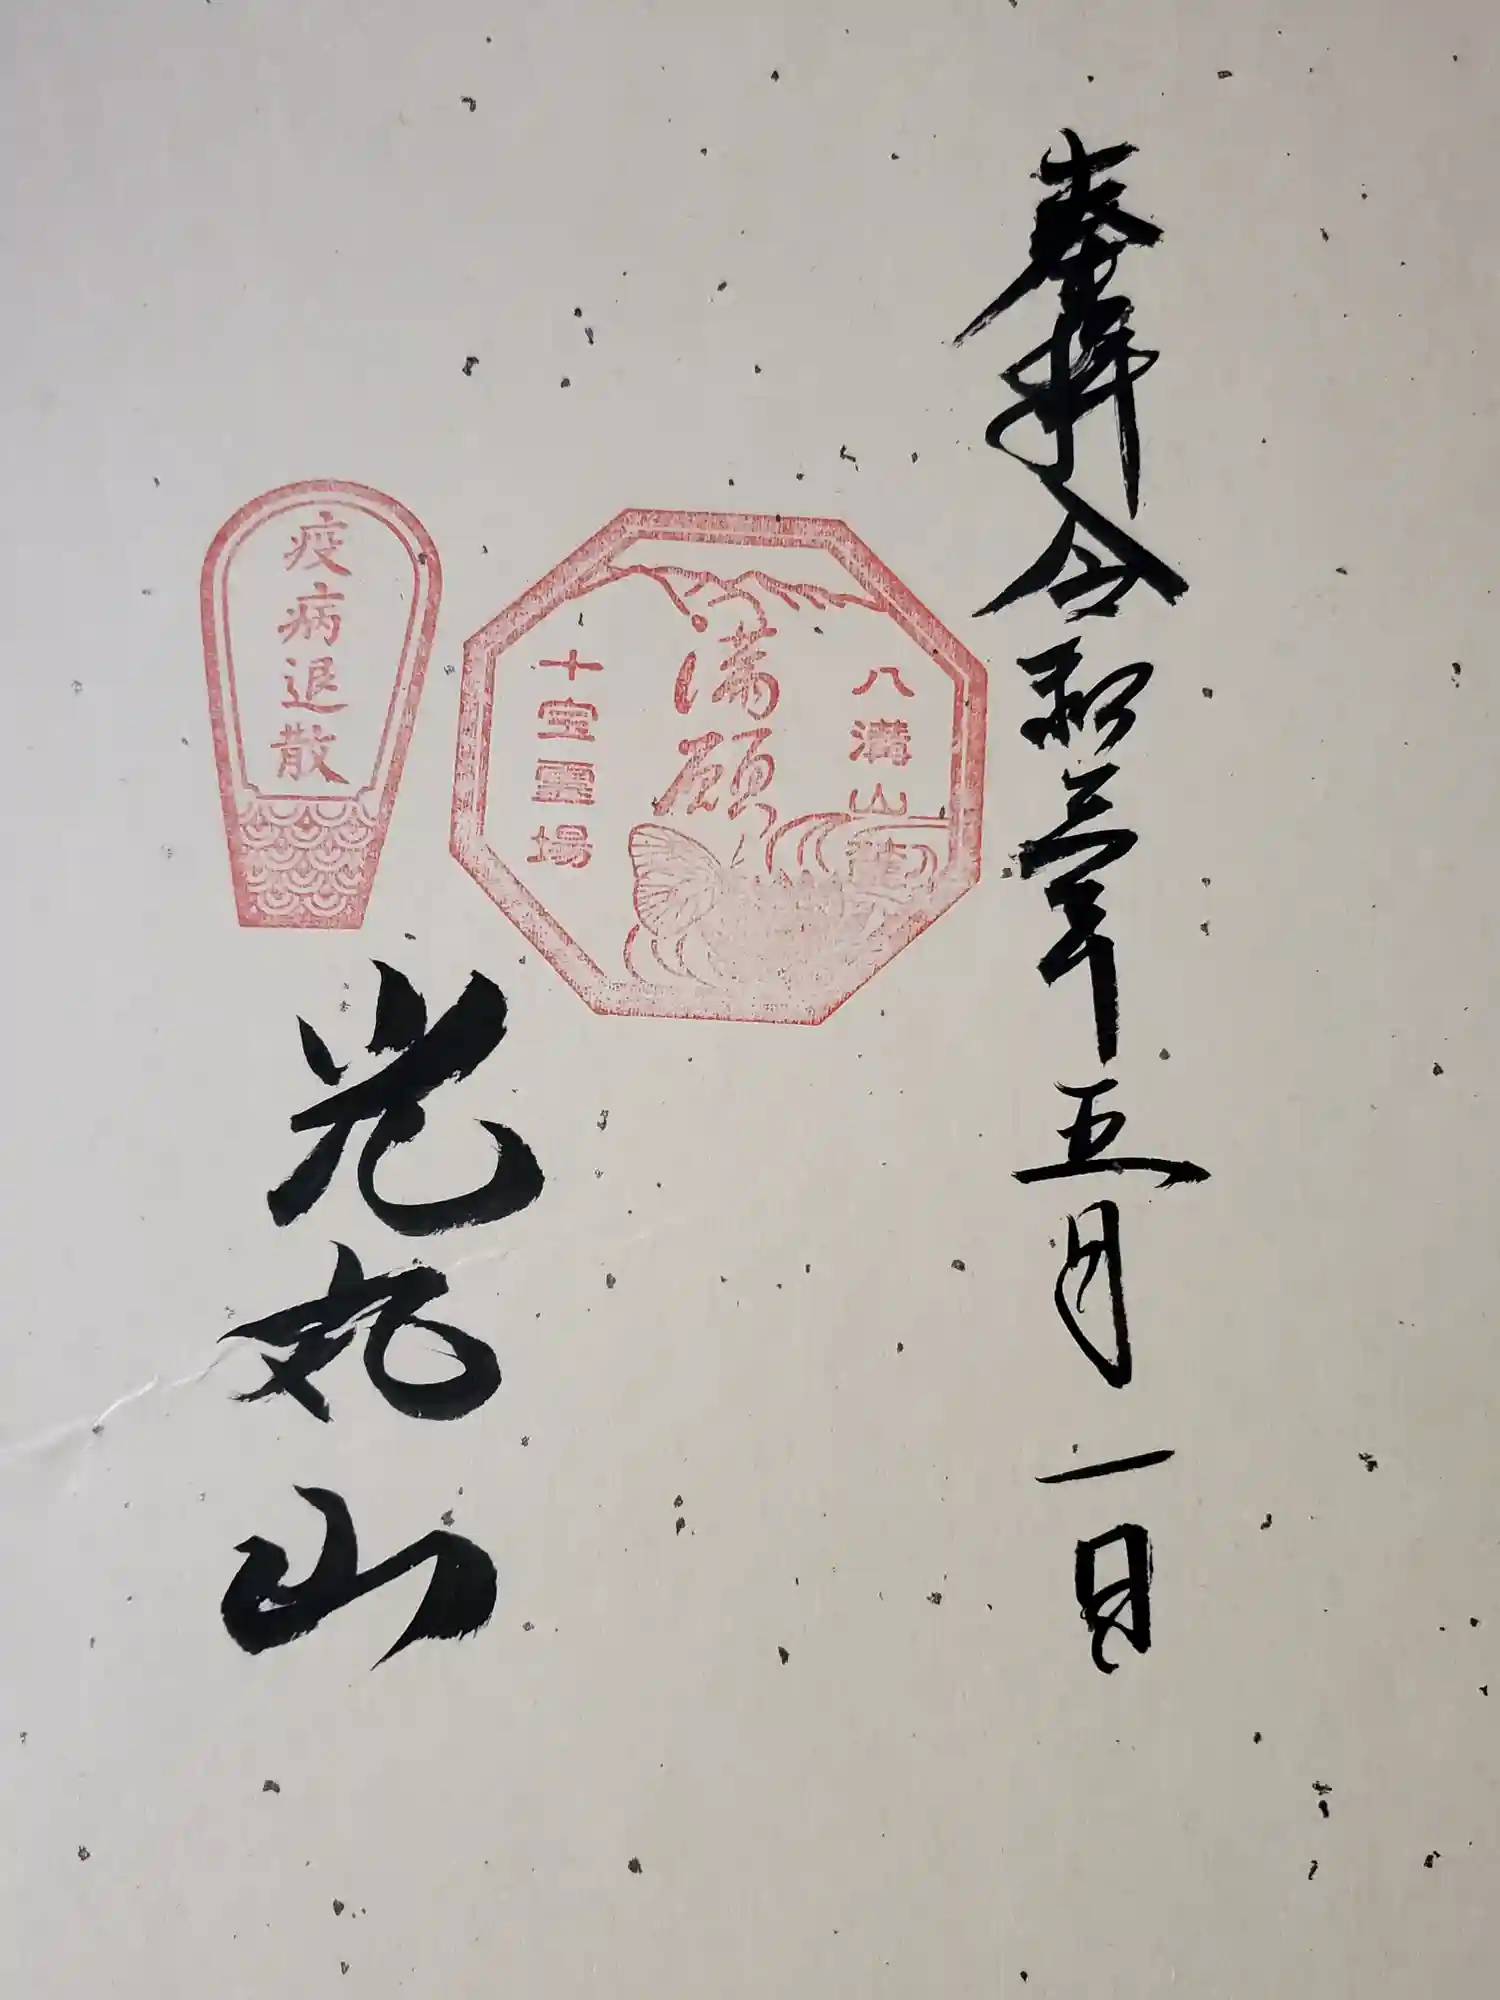 奉拝 令和三年 五月一日
八溝山
満願
十宝霊場
疫病退散
光丸山